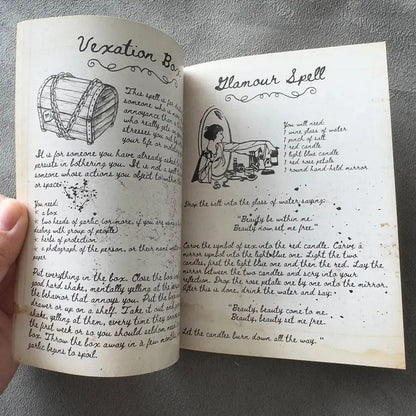 Vexation Box
This spell is for
someone who is
annoyance than
who really gets
stresses you
your life or
It is for someone you have already asked
persists in bothering you. It is not a spell
someone whose actions you object to
or space.
You need:
x a box
x two heads of garlic (or more, if you are
dealing with group of people)
x herbs of protection
x a photograph of the person, or their name
paper
Put everything in the box. Close the box and
good hard shake, mentally yelling at the
the behavior that annoys you. Put the box
drawer or up on a shelf. Take it out and
shake, yelling at them, every time they annoy
the first week or so you should seldom need
box. Throw the box away in a few months
garlic begins to spoil.
Glamour Spell
You will need:
1 wine glass of water
1 pinch of salt
1 red candle
1 light blue candle
7 red rose petals
1 round hand-held mirror
Drop the salt into the glass of water saying:
"Beauty be within me.
Beauty now set me free."
Carve the symbol of sex into the red candle. Carve a
mirror symbol into the lightblue. Light the two
candles, first the light blue one and then the red. Lay the
mirror between the two candles and scry into your
reflection. Drop the rose petals one by one onto the mirror.
After this is done, drink the water and say:
"Beauty, beauty come to me.
Beauty, beauty set me free.
Let the candles burn down all the way."